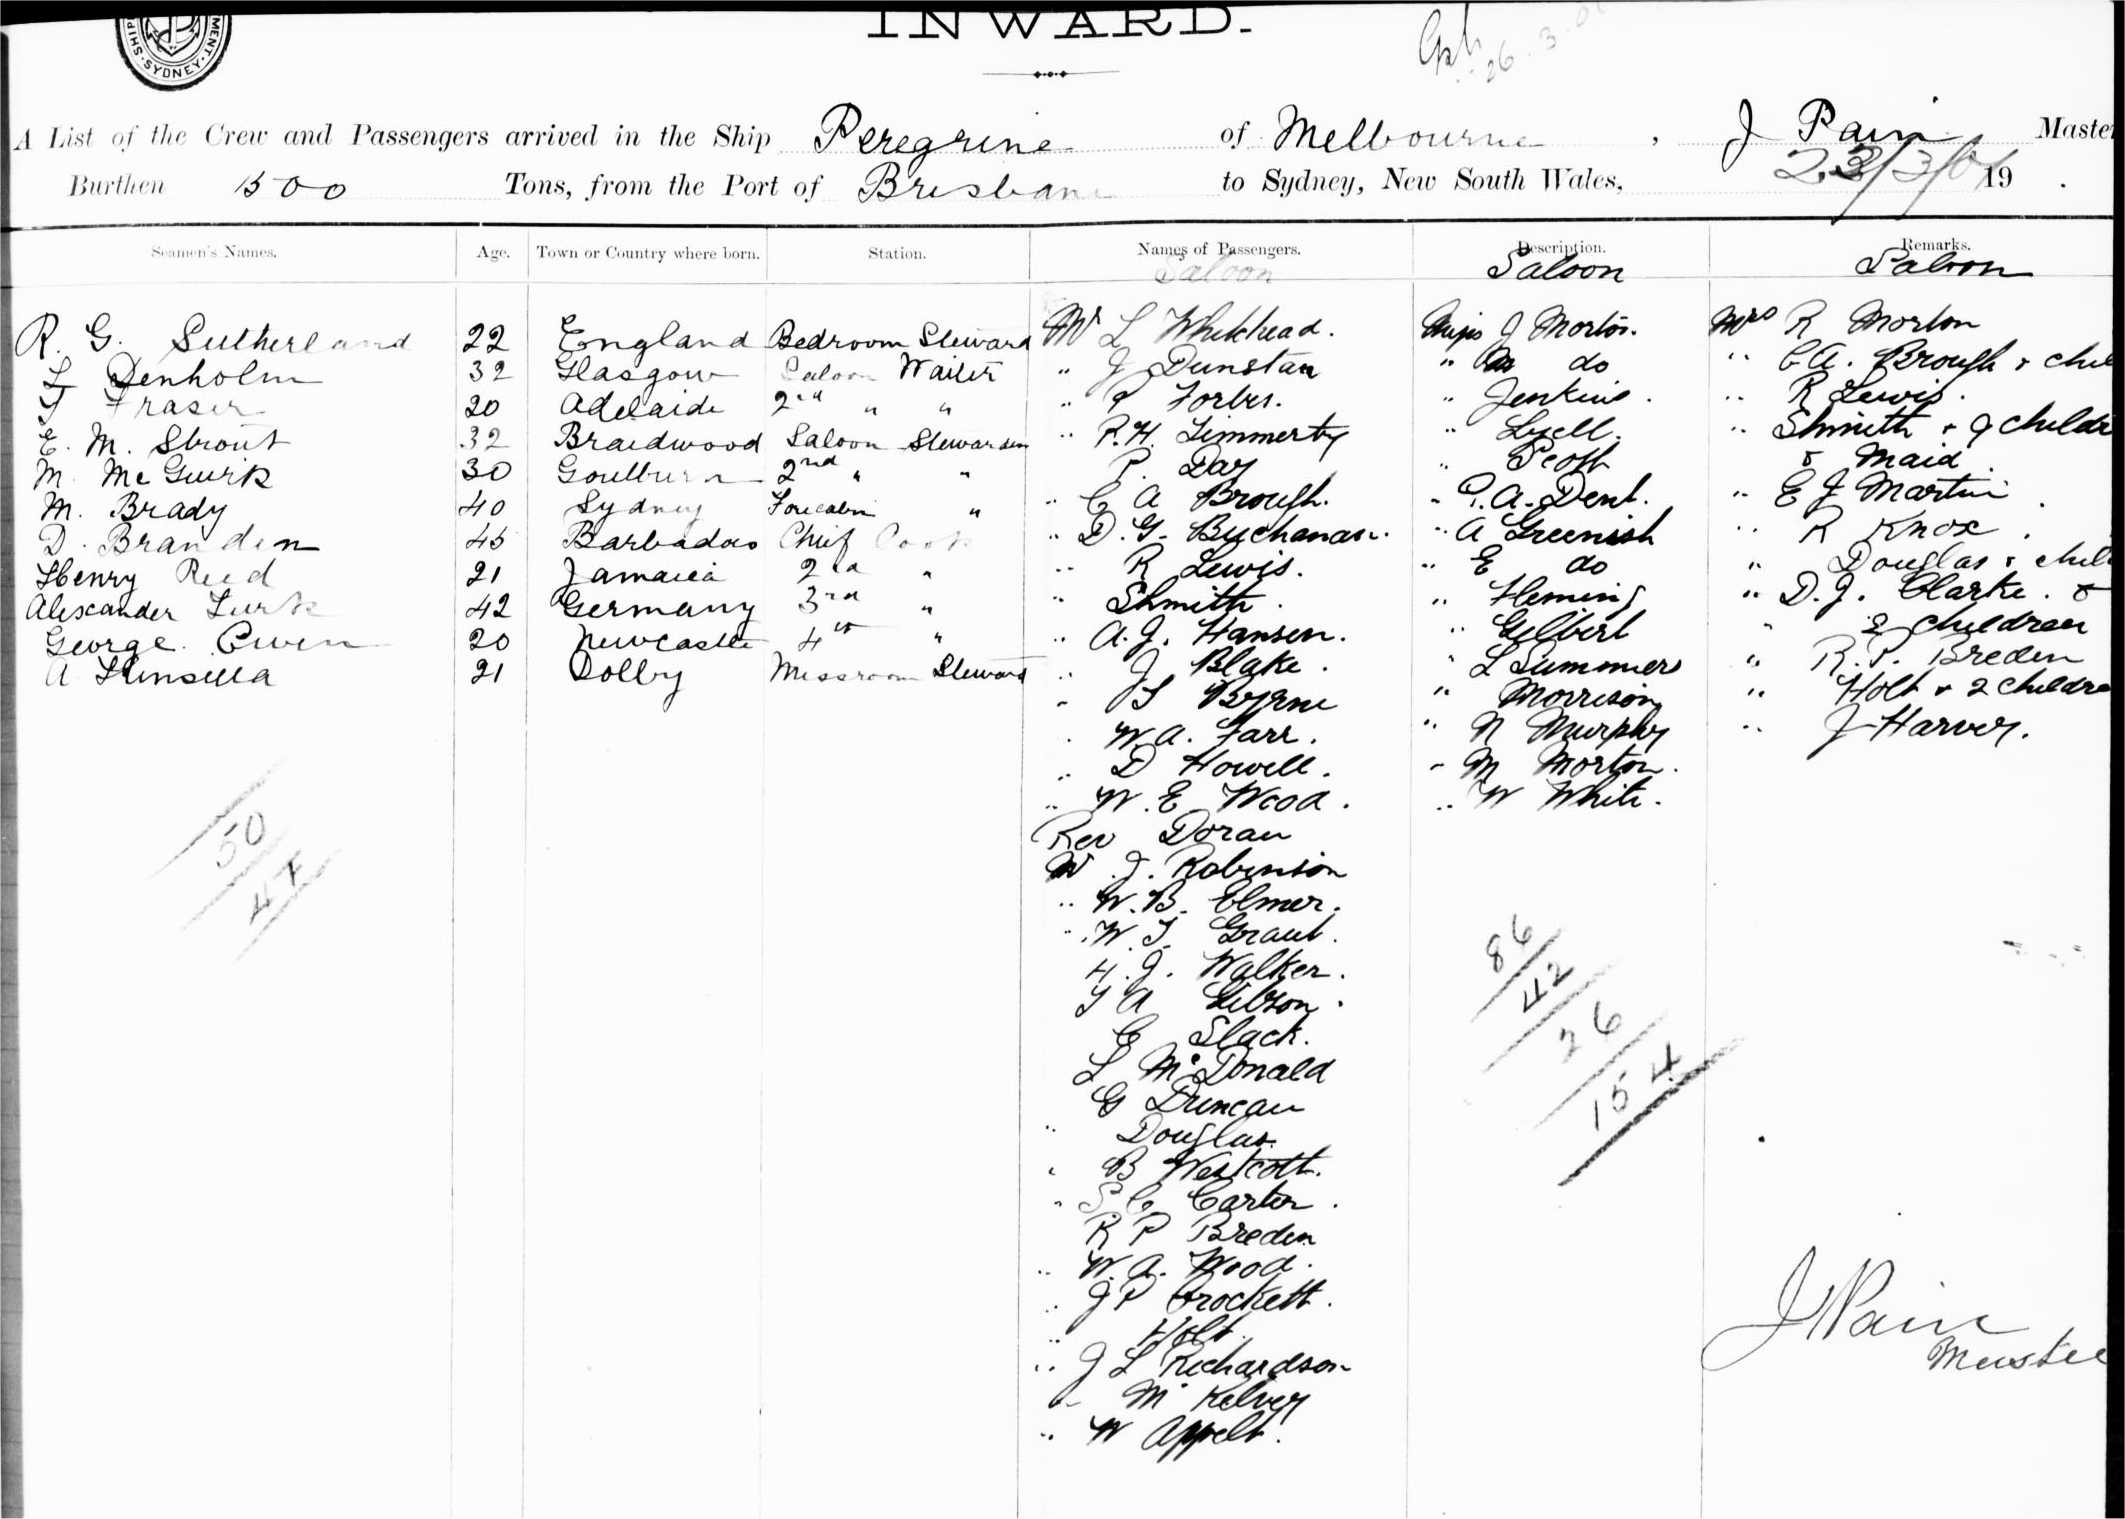 SHIP MENT. SYDNEY.
INWARD.
26.3.01
A List of the Crew and Passengers arrived in the Ship Peregrine of Melbourne, J Pain Master
Burthen 1500 Tons, from the Port of Brisbane to Sydney, New South Wales, 23/3/01 19 .
Seamen's Names. Age. Town or Country where born. Station. Names of Passengers. Description. Remarks.
Saloon Saloon Saloon
R. G. Sutherland 22 England Bedroom Steward
L Denholm 32 Glasgow Saloon Waiter
T Fraser 20 Adelaide 2nd " "
E. M. Strout 32 Braidwood Saloon Stewardess
M. McGuirk 30 Goulburn 2nd " "
M. Brady 40 Sydney Forecabin "
D. Branden 45 Barbados Chief Cook
Henry Reid 21 Jamaica 2nd "
Alexander Turk 42 Germany 3rd "
George Owen 20 Newcastle 4th "
A Kinsella 21 Dolby Messroom Steward
50
47
Mr L Whitehead.
" J Dunstan
" P Forbes.
" P. H. Timmerty
P. Day
" C A Brough.
" D. G. Buchanan.
" R Lewis.
" Shmith.
" A. J. Hansen.
" J Blake.
" T Byrne
" W A. Farr.
" D Howell.
" W. E Wood.
Rev Doran
Mr J. Robinson
" W. B. Elmer.
" W. T. Grant.
H. J. Walker.
T A Gibson.
C Slack.
L McDonald
G Duncan
" Douglas.
" B Westcott.
" S C Carter.
R P Breden
" W. A. Wood.
" J P Crockett.
" Holt.
" J L Richardson
" McKelvey
" W Appelt.
Miss J Morton.
" M do
" Jenkins.
" Lyell.
" Scott
" P. A. Dent.
" A Greenish
" E do
" Fleming
" Gilbert
" L Summers
" Morrison
" N Murphy
" M Morton.
" W White.
86
42
26
154
Mrs R Morton
" C A. Brough & chil
" R Lewis.
" Shmith & 9 childr
& Maid
" E J Martin
" R Knox.
" Douglas & chil
" D. J. Clarke. &
" 2 children
" R. P. Breden
" Holt & 2 childre
" J Harvey.
J Pain
Master